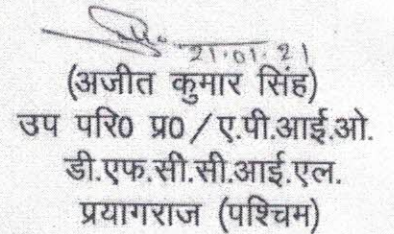 21.01.21
(अजीत कुमार सिंह)
उप परि0 प्र0/ए.पी.आई.ओ.
डी.एफ.सी.सी.आई.एल.
प्रयागराज (पश्चिम)